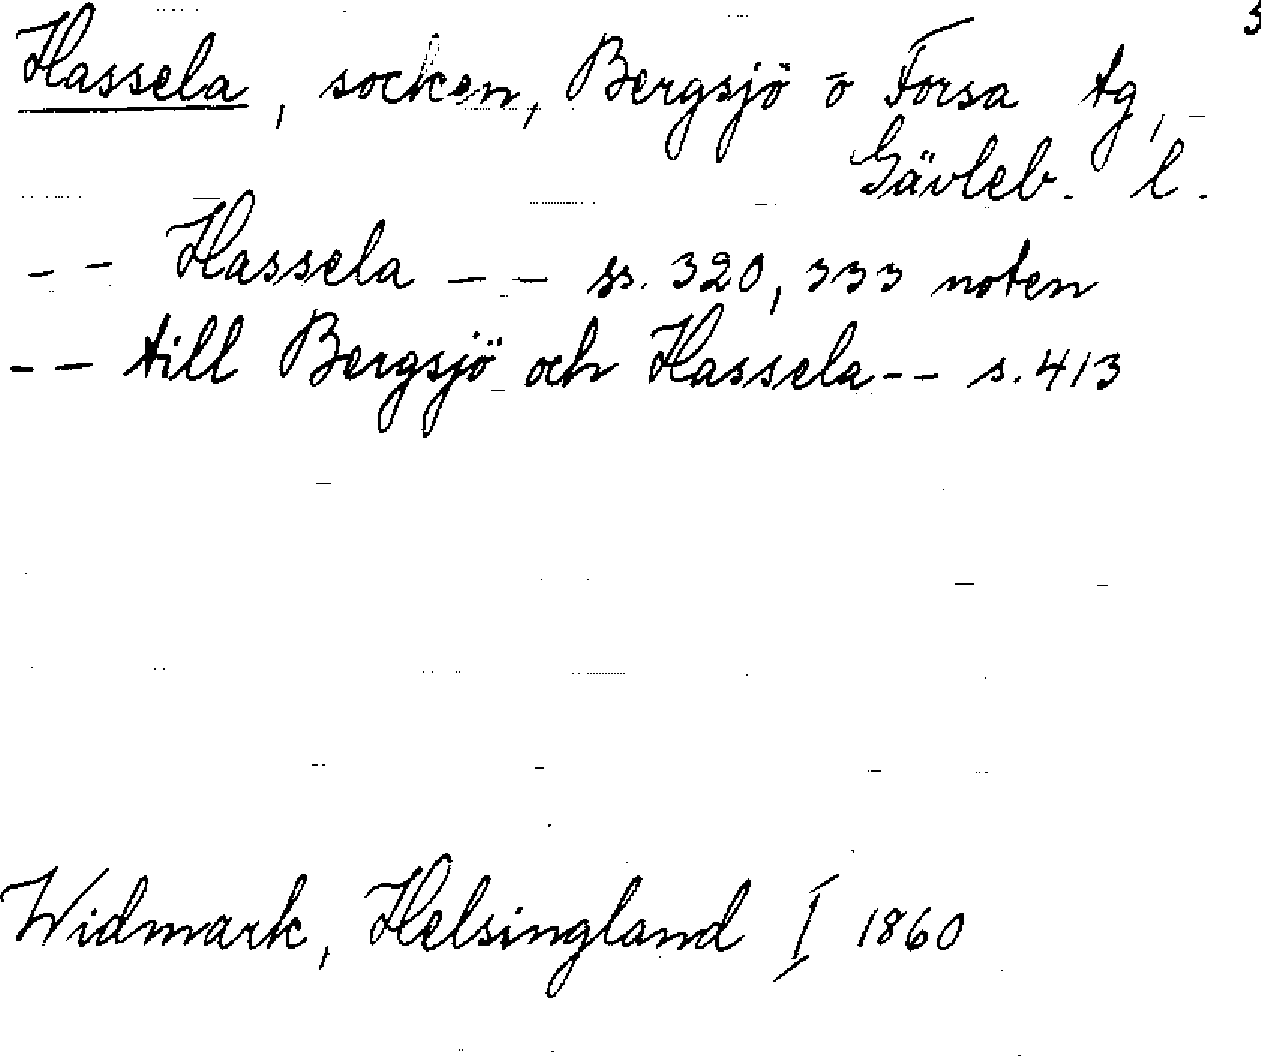 3
Hassela, socken, Bergsjö o Forsa tg,
Gävleb. l.
-- Hassela -- ss. 320, 333 noten
-- till Bergsjö och Hassela -- s. 413
Widmark, Helsingland I 1860